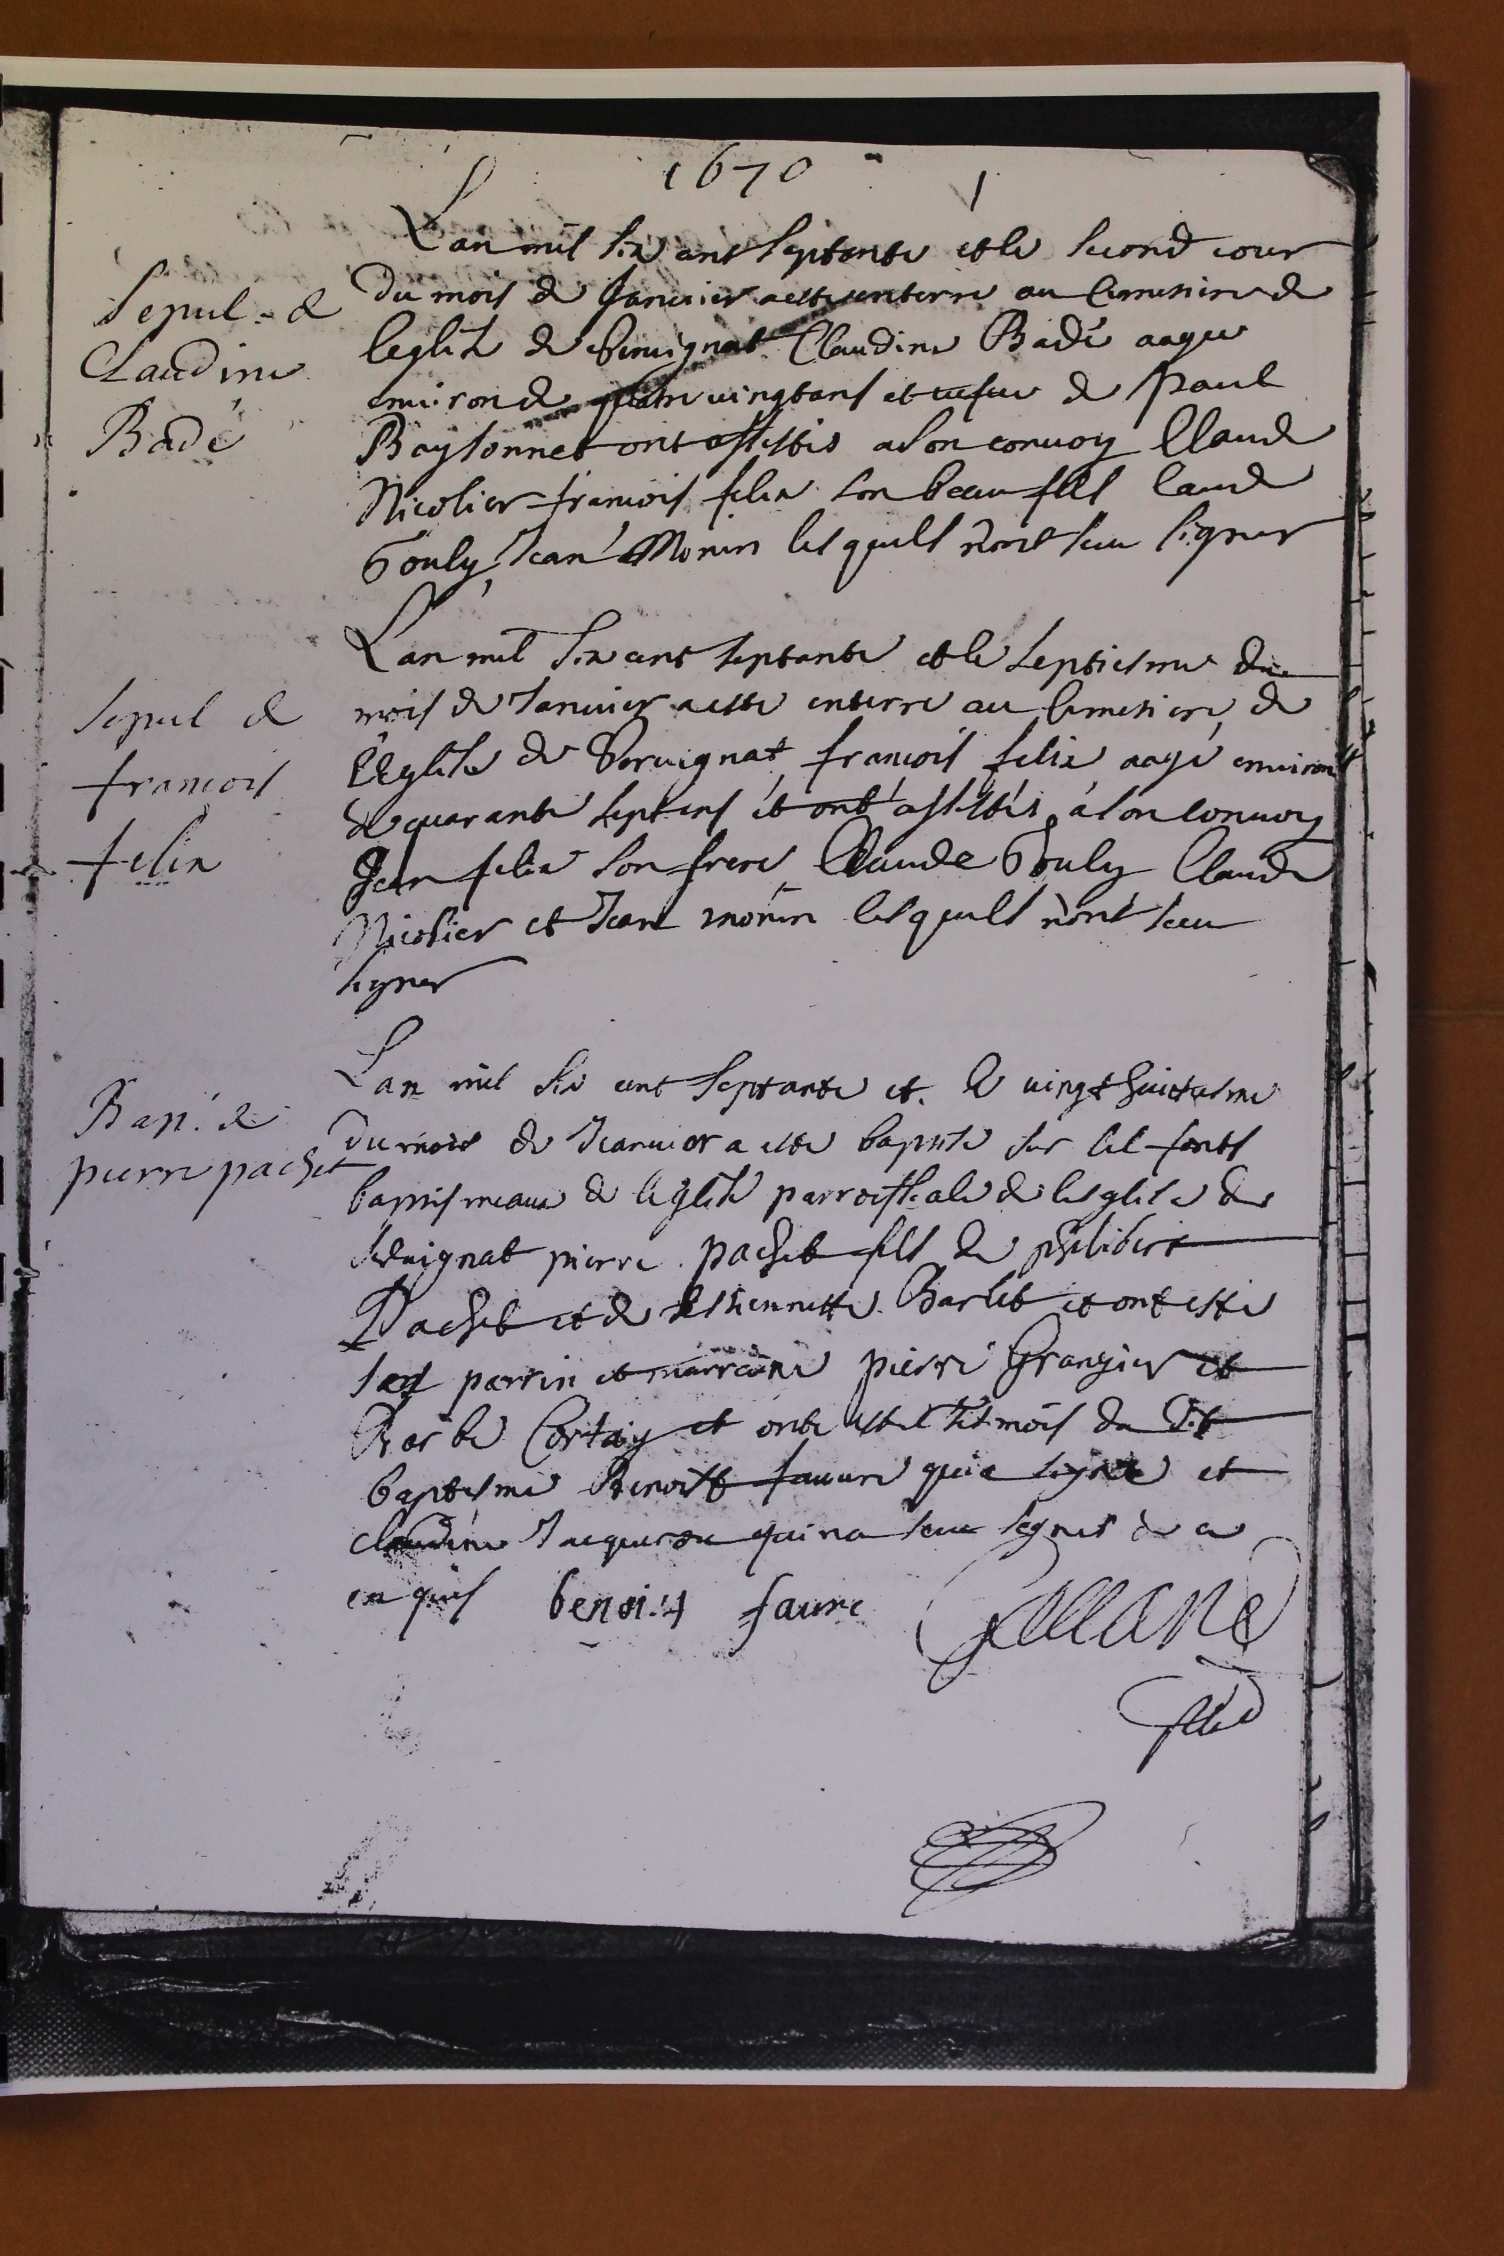 1670
1
Sepul. de
Claudine
Badé
L'an mil six cent septente et le second iour
du mois de Januier a esté enterre au Cemetiere de
leglise de Seruignat Claudine Badé aagee
enuiron de quatre uingt ans et uefue de Paul
Boysonnet ont assistés a son conuoy Claude
Nicolier francois felix son beau fils laude
Gouly, Jean Monin lesquels n'ont sceu signer
Sepul de
francois
felix
L'an mil six cent septante et le septiesme du
mois de Januier a esté enterre au Cemetiere de
l'Eglise de Seruignat francois felix aagé enuiron
de quarante sept ans et ont assistés a son conuoy
Jean felix son frere Claude Gouly Claude
Nicolier et Jean monin lesquels n'ont sceu
signer
Bap. de
pierre pachet
L'an mil six cent septante et le uingt huictiesme
du mois de Januier a esté baptisé sur les fonts
baptismeaux de leglise parroissiale de lesglise de
Seruignat pierre pachet fils de philibert
Pachet et de Esthiennette Barlet et ont esté
ses parrin et marraine pierre Grangier et
Barbe Cortay et onte estes tesmois du dit
baptesme Benoist fauure qui a signé et
claudine Jaquerou qui na sceu signer de ce
enquis benoist faure Gallane